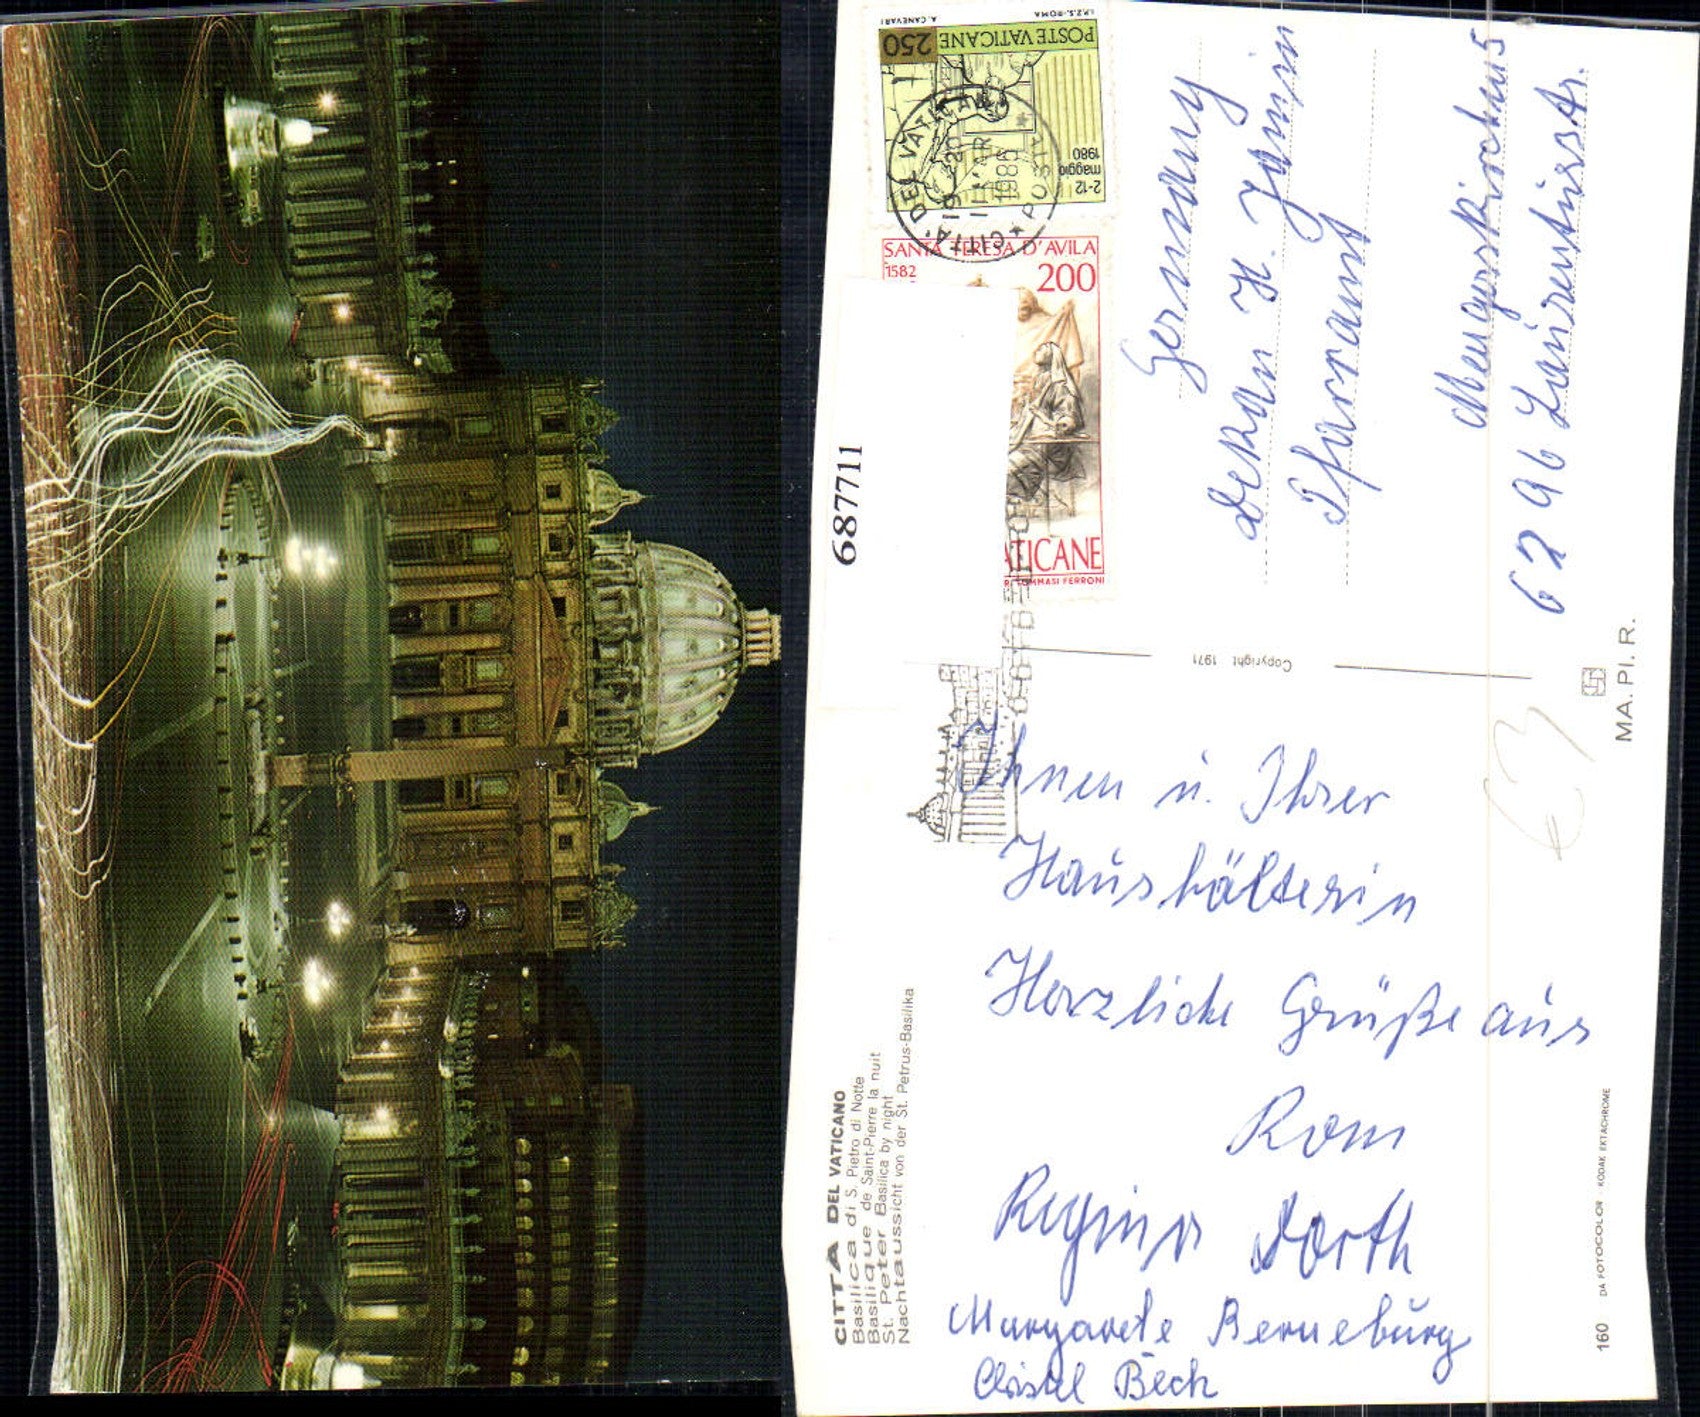 CITTÀ DEL VATICANO
Basilica di S. Pietro di Notte
Basilique de Saint-Pierre la nuit
St. Peter Basilica by night
Nachtaussicht von der St. Petrus-Basilika
687711
A. CANEVARI
I.P.Z.S.-ROMA
POSTE VATICANE
250
2-12
maggio
1980
CITTA' DEL VATICANO
POSTA
1985
SANTA TERESA D'AVILA
1582
200
ATICANE
TOMMASI FERRONI
Copyright 1971
Germany
Dekan H. Janin
Pfarramt
6296
Ihnen u. Ihrer
Haushälterin
Herzliche Grüße aus
Rom
Regina Dorth
Margarete Berneburg
Christel Beck
€3
MA. PI. R.
160 DA FOTOCOLOR - KODAK EKTACHROME